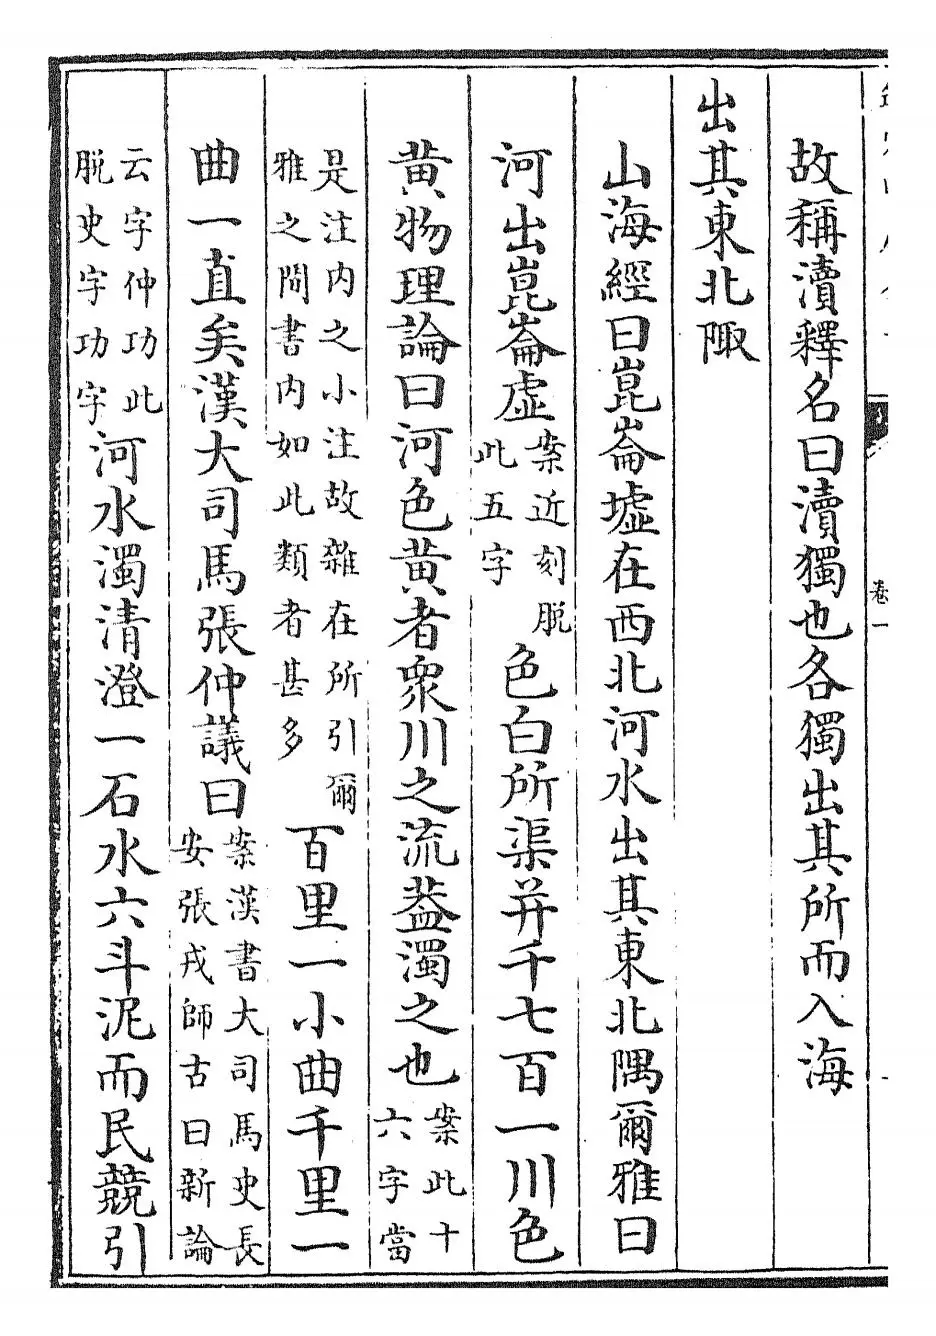 故稱瀆釋名曰瀆獨也各獨出其所而入海
出其東北陬
山海經曰崑崙墟在西北河水出其東北隅爾雅曰
河出崑崙虛案近刻脱此五字色白所渠并千七百一川色
黄物理論曰河色黄者衆川之流葢濁之也案此十六字當
是注内之小注故雜在所引爾雅之間書内如此類者甚多百里一小曲千里一
曲一直矣漢大司馬張仲議曰案漢書大司馬史長安張戎師古曰新論
云字仲功此脱史字功字河水濁清澄一石水六斗泥而民競引